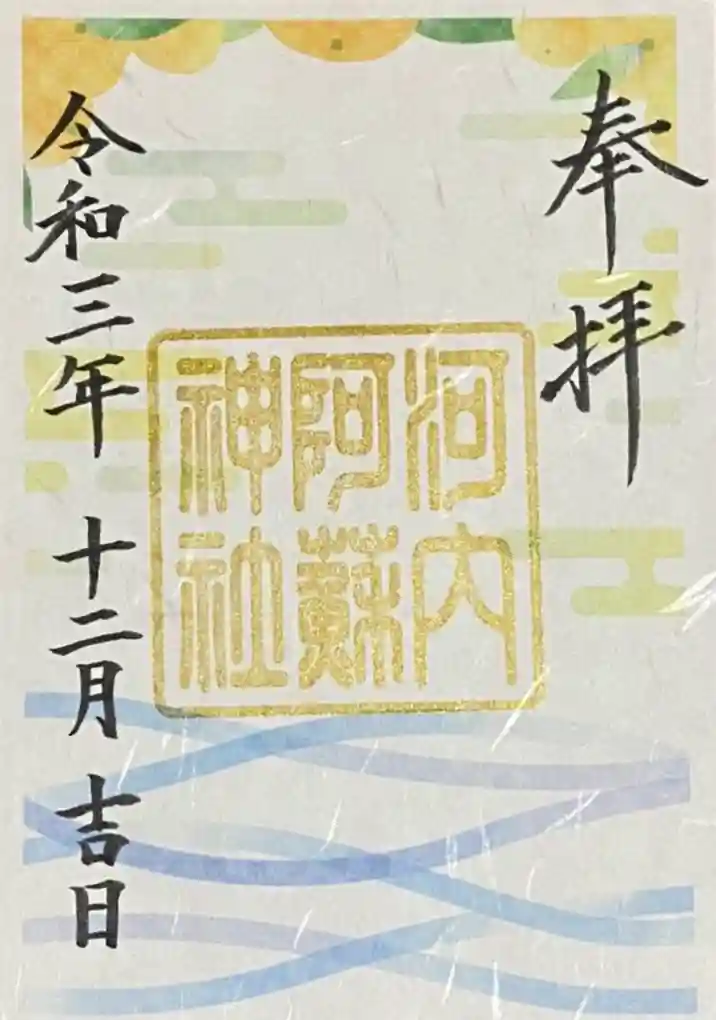 奉拝
河内
阿蘇
神社
令和三年 十二月 吉日